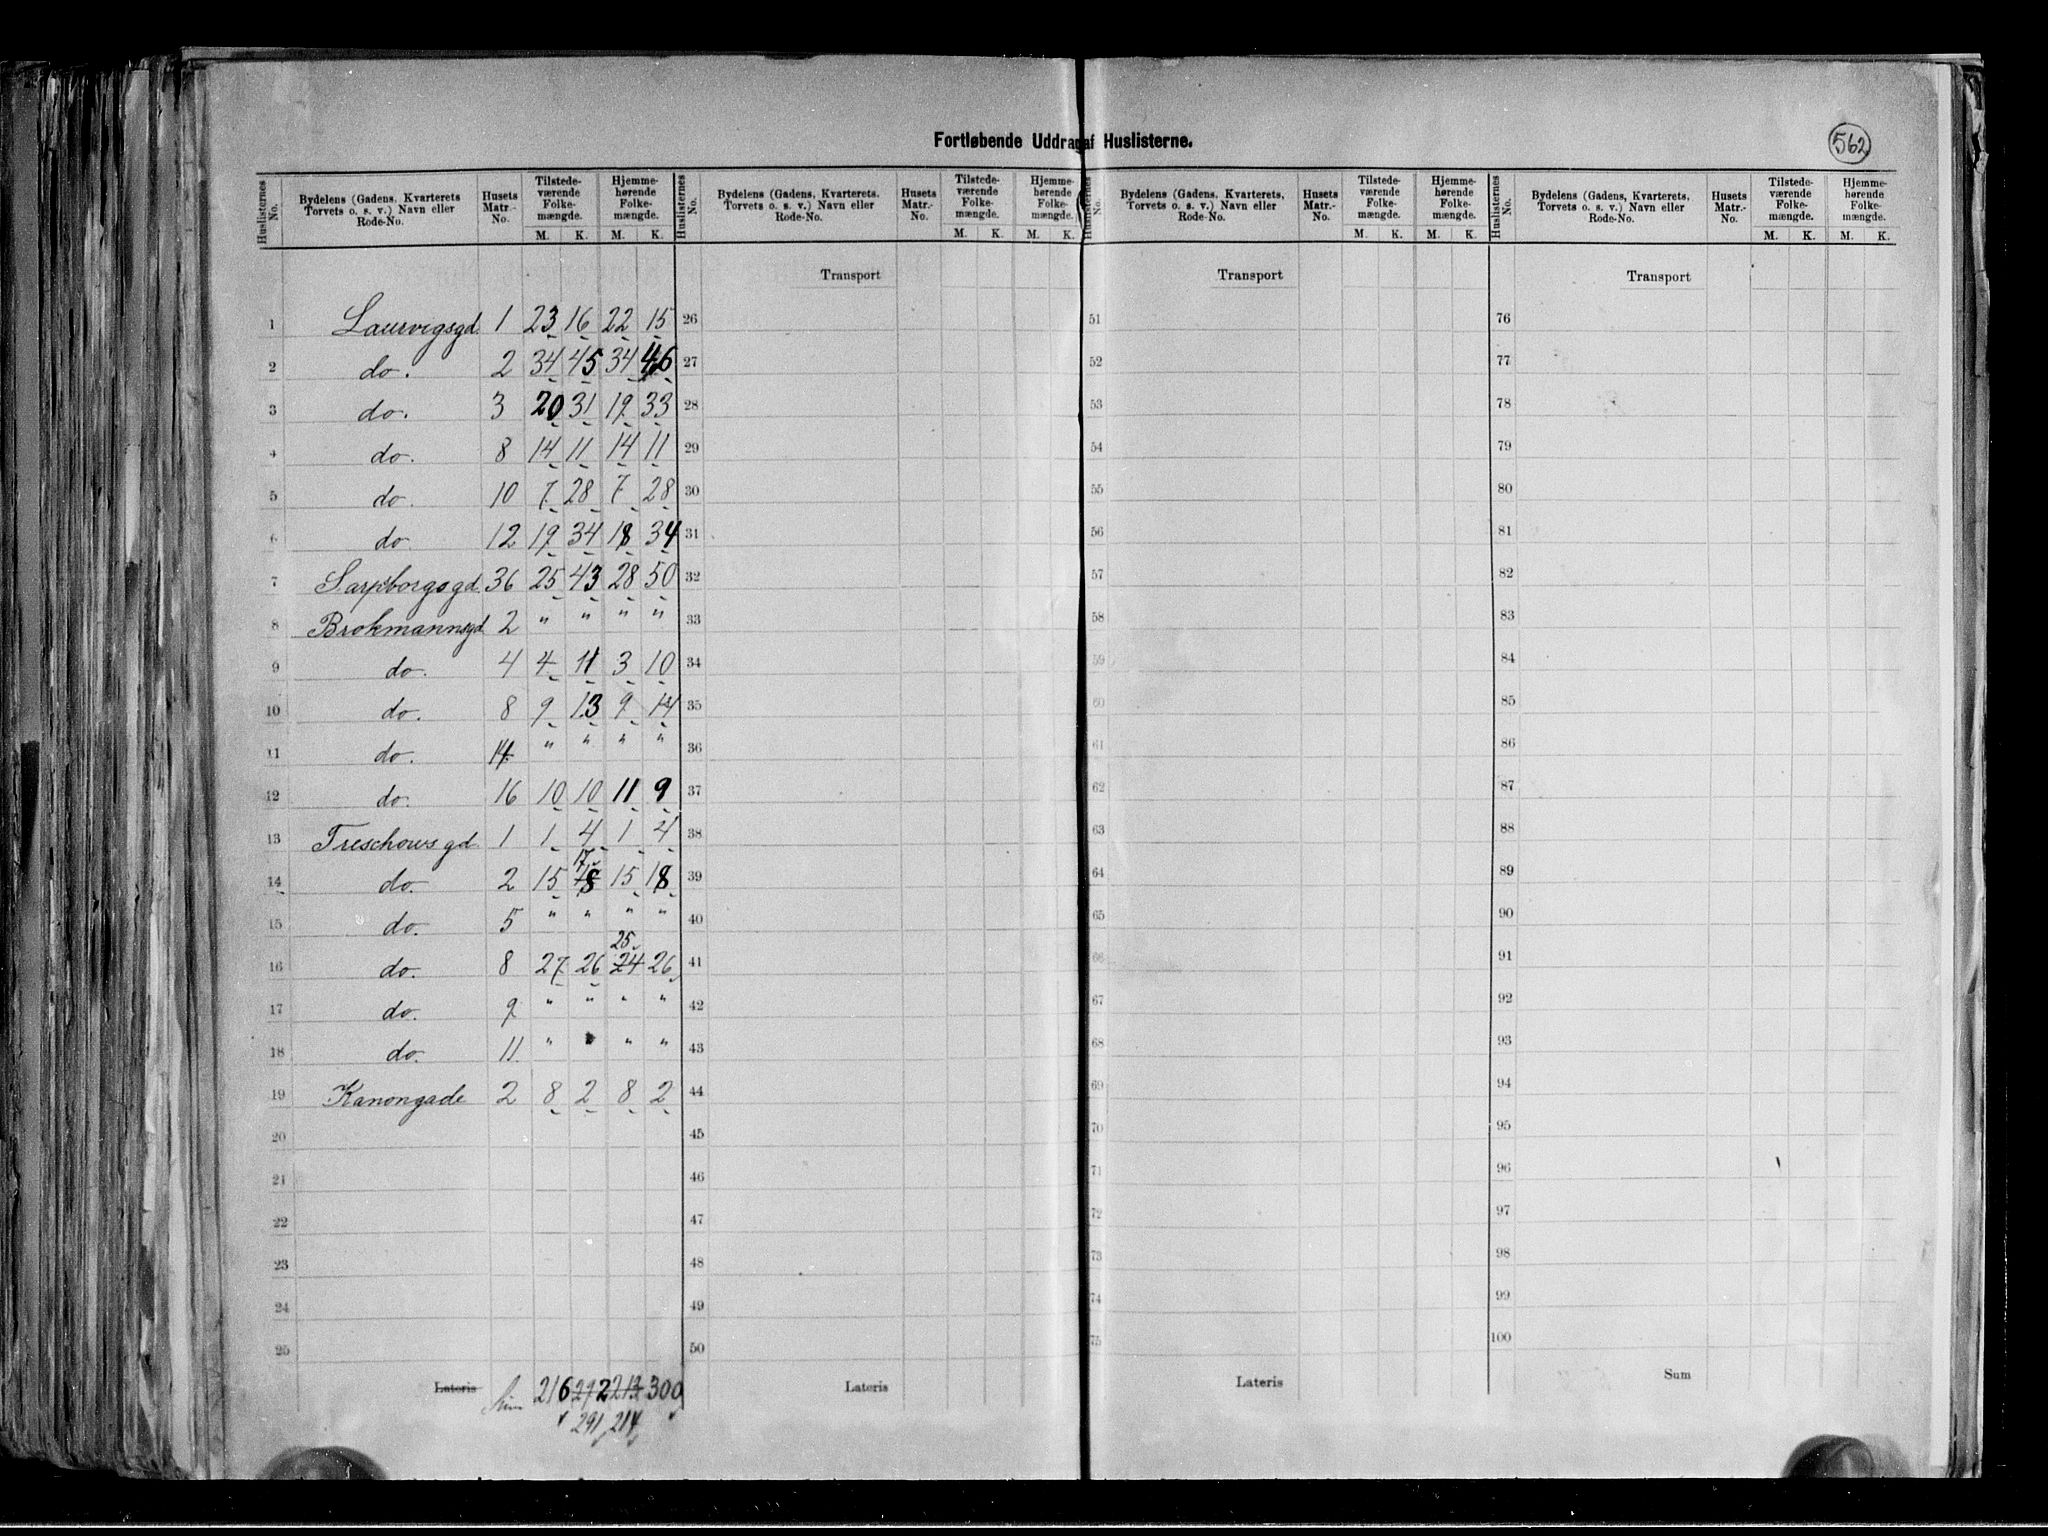 Fortløbende Uddrag af Huslisterne.
562
Huslisternes No. Bydelens (Gadens, Kvarterets Torvets o. s. v.) Navn eller Rode-No. Husets Matr.-No. Tilstedeværende Folkemængde. M. K. Hjemmehørende Folkemængde. M. K.
Huslisternes No. Bydelens (Gadens, Kvarterets, Torvets o. s. v.) Navn eller Rode-No. Husets Matr.-No. Tilstedeværende Folkemængde. M. K. Hjemmehørende Folkemængde. M. K.
Huslisternes No. Bydelens (Gadens, Kvarterets, Torvets o. s. v.) Navn eller Rode-No. Husets Matr.-No. Tilstedeværende Folkemængde. M. K. Hjemmehørende Folkemængde. M. K.
Huslisternes No. Bydelens (Gadens, Kvarterets, Torvets o. s. v.) Navn eller Rode-No. Husets Matr.-No. Tilstedeværende Folkemængde. M. K. Hjemmehørende Folkemængde. M. K.
Transport Transport Transport
1 Laurvigsgd. 1 23 16 22 15 26 51 76
2 do. 2 34 45 34 46 27 52 77
3 do. 3 20 31 19 33 28 53 78
4 do. 8 14 11 14 11 29 54 79
5 do. 10 7 28 7 28 30 55 80
6 do. 12 19 34 18 34 31 56 81
7 Sarpborgsgd. 36 25 43 28 50 32 57 82
8 Brokmannsgd 2 " " " " 33 58 83
9 do. 4 4 11 3 10 34 59 84
10 do. 8 9 13 9 14 35 60 85
11 do. 14 " " " " 36 61 86
12 do. 16 10 10 11 9 37 62 87
13 Treschowsgd. 1 1 4 1 4 38 63 88
17
14 do. 2 15 18 15 18 39 64 89
15 do. 5 " " " " 40 65 90
25
16 do. 8 27 26 24 26 41 66 91
17 do. 9 " " " " 42 67 92
18 do. 11 " " " " 43 68 93
19 Kanongade 2 8 2 8 2 44 69 94
20 45 70 95
21 46 71 96
22 47 72 97
23 48 73 98
24 49 74 99
25 50 75 100
Lateris Sum 216 292 213 300 Lateris Lateris Sum
291 214